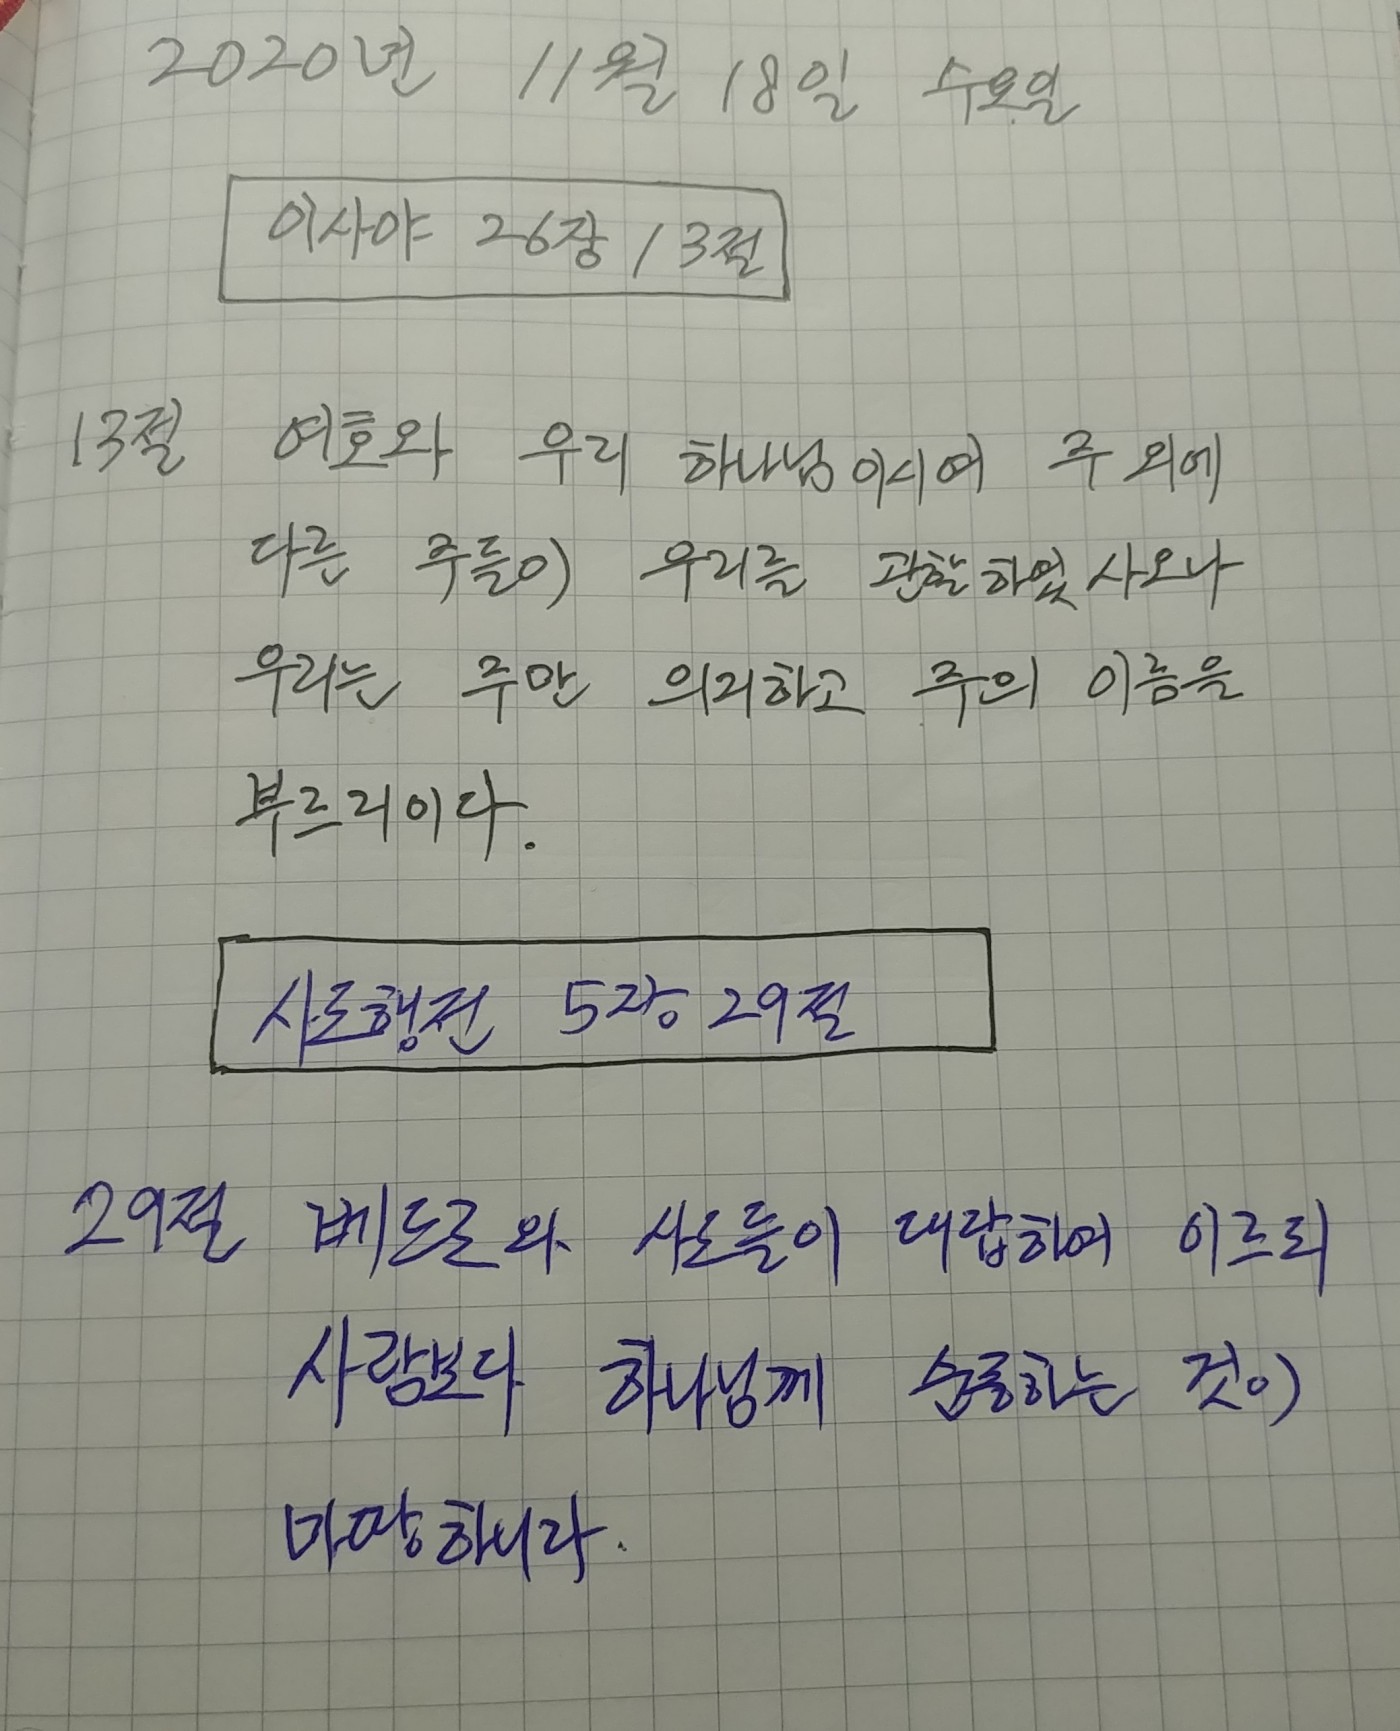 2020년 11월 18일 수요일
이사야 26장 13절
13절 여호와 우리 하나님이시여 주 외에
다른 주들이 우리를 관할하였사오나
우리는 주만 의리하고 주의 이름을
부르리이다.
사도행전 5장 29절
29절 베드로와 사도들이 대답하여 이르되
사람보다 하나님께 순종하는 것이
마땅하니라.